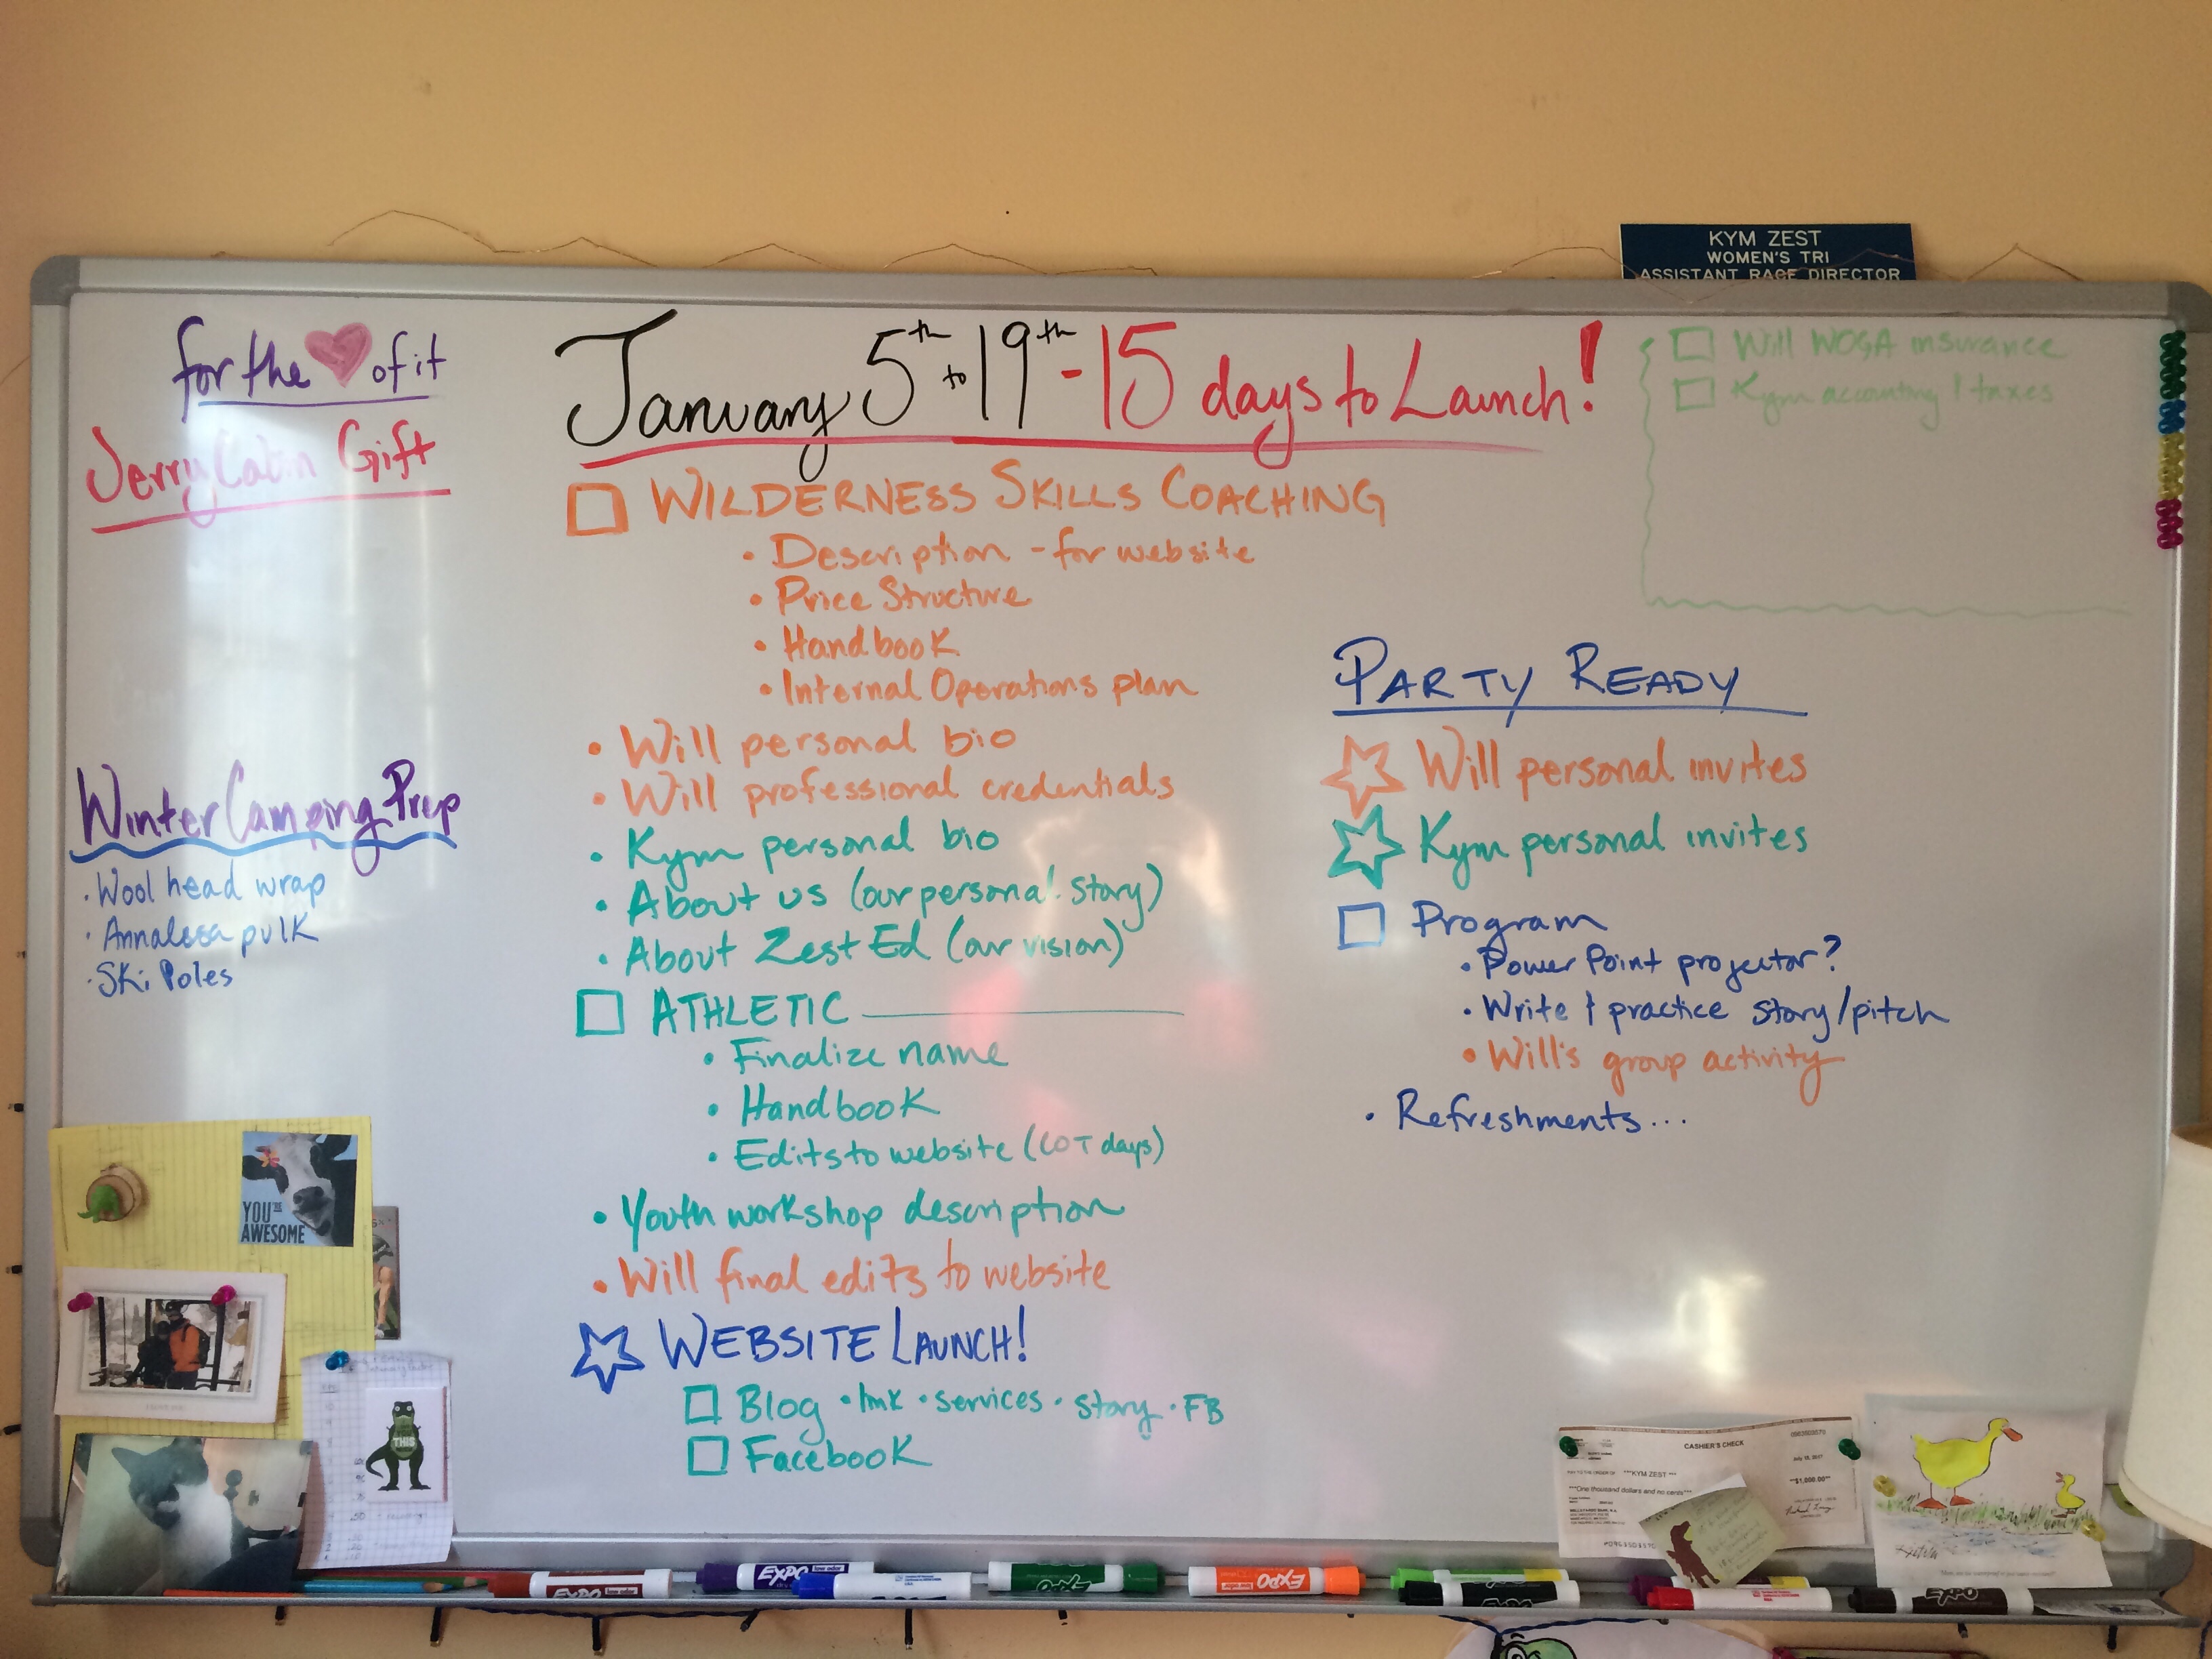 KYM ZEST
WOMEN'S TRI
ASSISTANT RACE DIRECTOR
for the ❤ of it
Jerry Cabin Gift
Winter Camping Prep
· Wool head wrap
· Annalesa pulk
· Ski Poles
January 5th to 19th - 15 days to Launch!
☐ WILDERNESS SKILLS COACHING
• Description - for website
• Price Structure
• Handbook
• Internal Operations plan
• Will personal bio
• Will professional credentials
• Kym personal bio
• About us (our personal story)
• About Zest Ed (our vision)
☐ ATHLETIC
• Finalize name
• Handbook
• Edits to website (days)
• Youth workshop description
• Will final edits to website
☆ WEBSITE LAUNCH!
☐ Blog • link • services • story • FB
☐ Facebook
☐ Will WOGA insurance
☐ Kym accounting & taxes
PARTY READY
☆ Will personal invites
☆ Kym personal invites
☐ Program
• Power Point projector?
• Write & practice story/pitch
• Will's group activity
• Refreshments...
YOU'RE
AWESOME
THIS
CASHIER'S CHECK
July
PAY TO THE ORDER OF ***KYM ZEST ***
**$1,000.00**
***One thousand dollars and no cents***
EXPO
EXPO
EXPO
EXPO
EXPO
EXPO